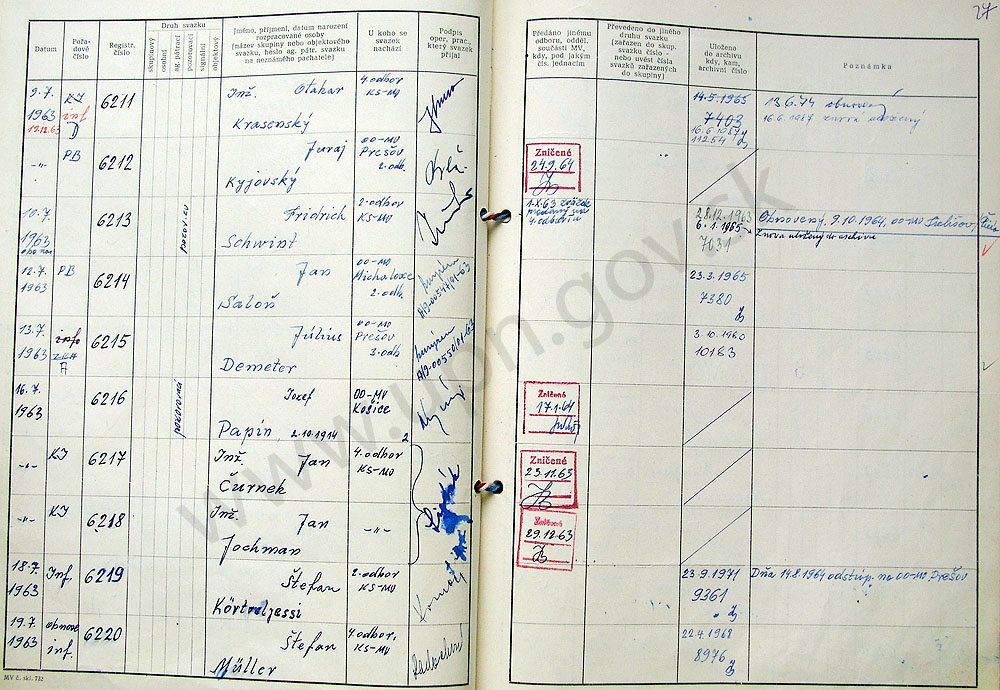 27
Datum
Pořadové číslo
Registr. číslo
Druh svazku
skupinový
osobní
ag. pátrací
pozorovací
signální
objektový
Jméno, příjmení, datum narození
rozpracované osoby
(název skupiny nebo objektového
svazku, heslo ag. pátr. svazku
na neznámého pachatele)
U koho se
svazek
nachází
Podpis
oper. prac.,
který svazek
přijal
Předáno jinému
odboru, odděl.
součásti MV,
kdy, pod jakým
čís. jednacím
Převedeno do jiného
druhu svazku
(zařazen do skup.
svazku číslo -
nebo uvést čísla
svazků zařazených
do skupiny)
Uloženo
do archivu
kdy, kam,
archivní číslo
Poznámka
9.7.
1963
17.12.63
KI
inf
D
6211
Inž. Otakar
Krasenský
4.odbor
KS-MV
14.5.1965
7403
16.6.1987
11254
13.6.74 obnovený
16.6.1987 znova uložený
-„-
PB
6212
Juraj
Kyjovský
OO-MV
Prešov
2.odb.
Zničené
24.9.64
10.7.
1963
6213
Fridrich
Schwint
2.odbor
KS-MV
1.X.63 svazek
4.odboru
28.12.1963
6.1.1965
7031
Obnovený 9.10.1964, OO-MV
Znova uložený do archívu
12.7.
1963
PB
6214
Jan
Saloň
OO-MV
Michalovce
2.odb.
A/3-00547/01-63
23.3.1965
7380
13.7.
1963
info
A
6215
Július
Demeter
OO-MV
Prešov
3.odb.
A/3-00550/01-63
3.10.1960
10183
16.7.
1963
6216
Jozef
Papín, 2.10.1914
OO-MV
Košice
2
Zničené
17.1.64
-„-
KI
6217
Inž. Jan
Čurnek
4.odbor
KS-MV
Zničené
23.11.63
-„-
KI
6218
Inž. Jan
Jochman
-„-
Zničené
29.12.63
18.7.
1963
Inf.
6219
Štefan
2.odbor
KS-MV
23.9.1971
9361
Dňa 14.8.1964 odstúp. na OO-MV Prešov
19.7.
1963
obnov.
inf.
6220
Štefan
Müller
4.odbor,
KS-MV
22.4.1968
8976
MV č. skl. 732
www.upn.gov.sk